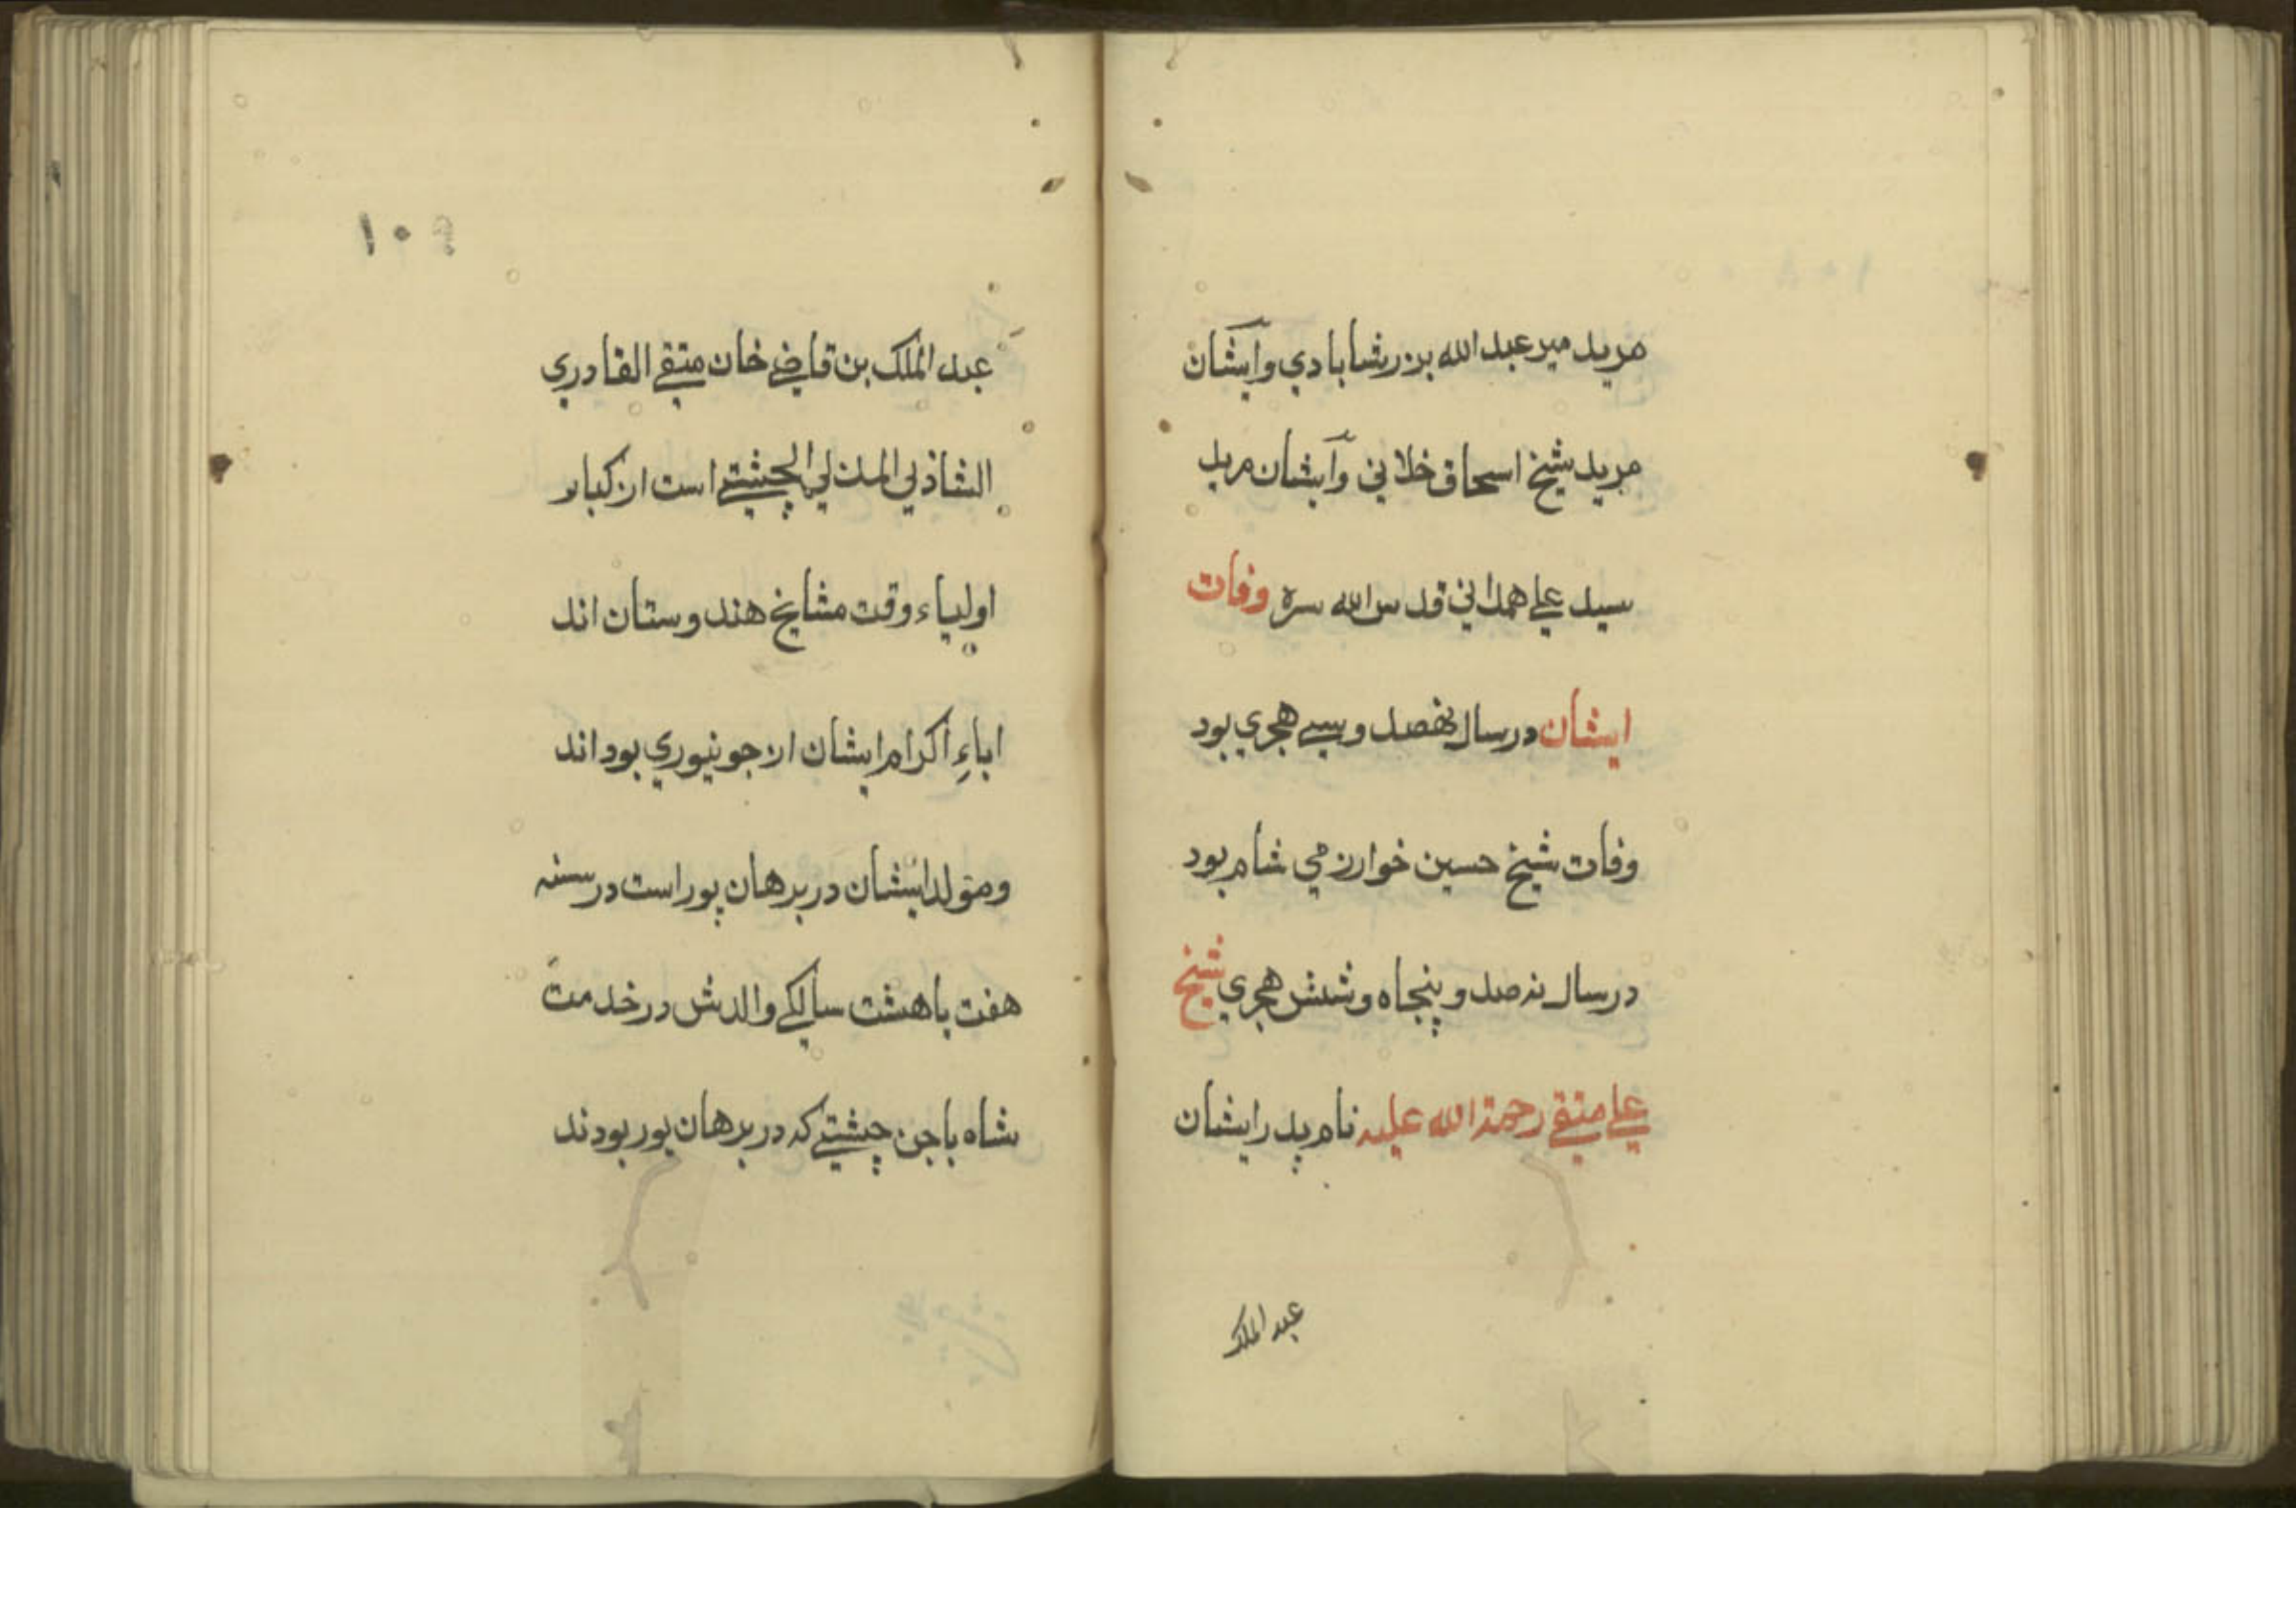 مريد مير عبد الله برزشابادي وايشان
مريد شيخ اسحاق ختلاني وايشان مريد
سيد علي همداني قدس الله سره وفات
ايشان در سال نهصد و سي هجري بود
وفات شيخ حسين خوارزمي شام بود
در سال نهصد و پنجاه و شش هجري شيخ
علي متقي رحمة الله عليه نام پدر ايشان
عبد الملك
١٠٩
عبد الملك بن قاضي خان متقي القادري
الشاذلي المدني الچشتي است از كبار
اولياء وقت مشايخ هندوستان اند
اباءِ اكرام ايشان از جونپوري بود اند
ومتولد ايشان در برهان پور است در سنه
هفت يا هشت سالگي والدش در خدمت
شاه باجن چشتي كه در برهان پور بودند